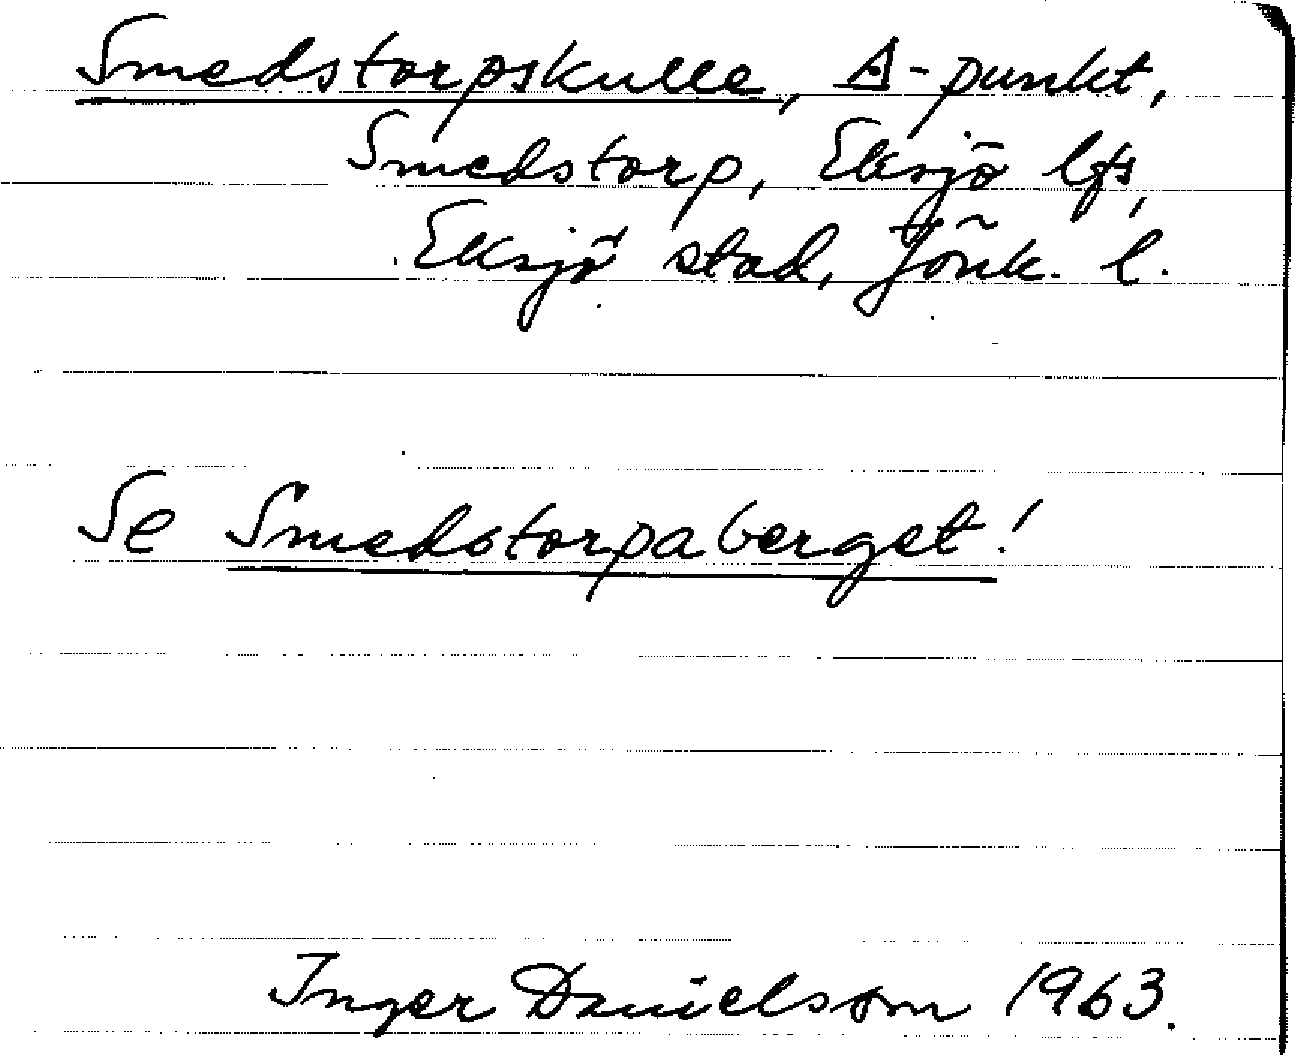 Smedstorpskulle, △-punkt,
Smedstorp, Eksjö lfs,
Eksjö stad, Jönk. l.
Se Smedstorpaberget!
Inger Danielsson 1963.